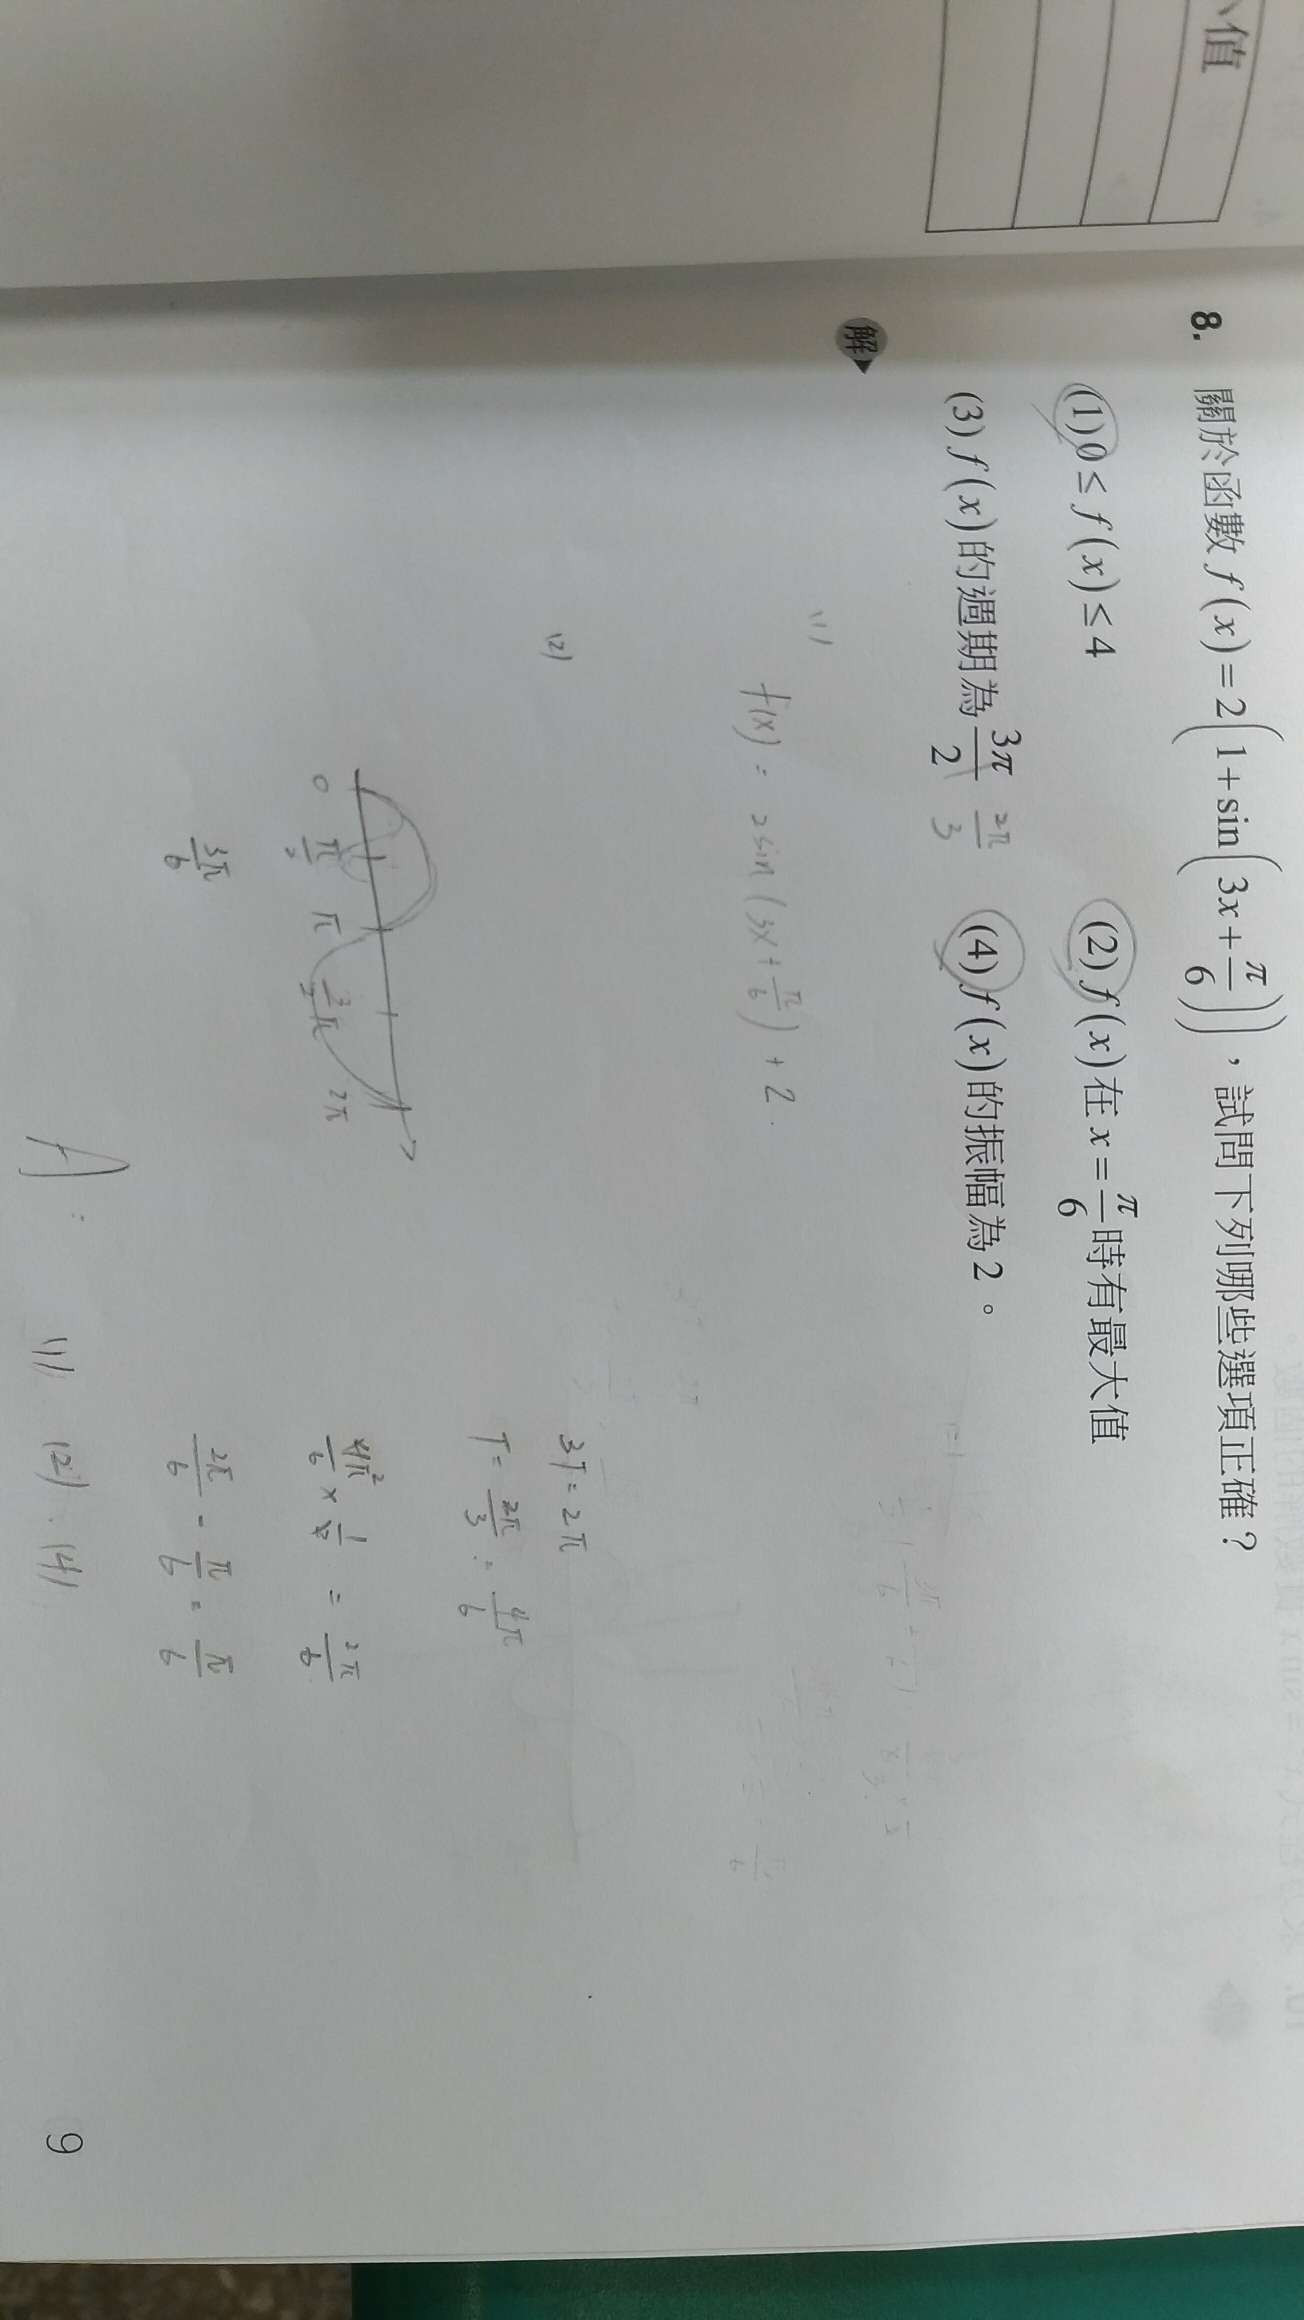 小值
8. 關於函數 f(x)=2(1+sin(3x+π/6))，試問下列哪些選項正確？
(1) 0≤f(x)≤4 (2) f(x)在 x=π/6 時有最大值
(3) f(x)的週期為 3π/2 2π/3 (4) f(x)的振幅為2。
解
(1)
f(x) = 2sin(3x+π/6)+2.
(2)
3T=2π
T=2π/3=4π/6
0 π/2 π 3/2π 2π
3π/6
2π/6 - π/6 = π/6
A: (1). (2). (4)
9